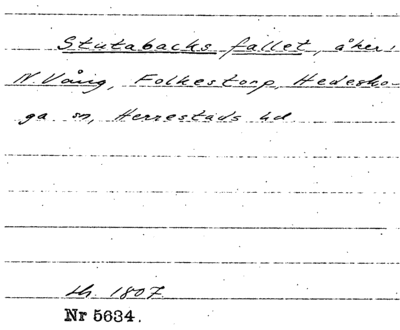 Stutabacks fallet, åker i
N. Vång, Folkestorp, Hedesko-
ga sn, Herrestads hd
sh. 1807
Nr 5634.